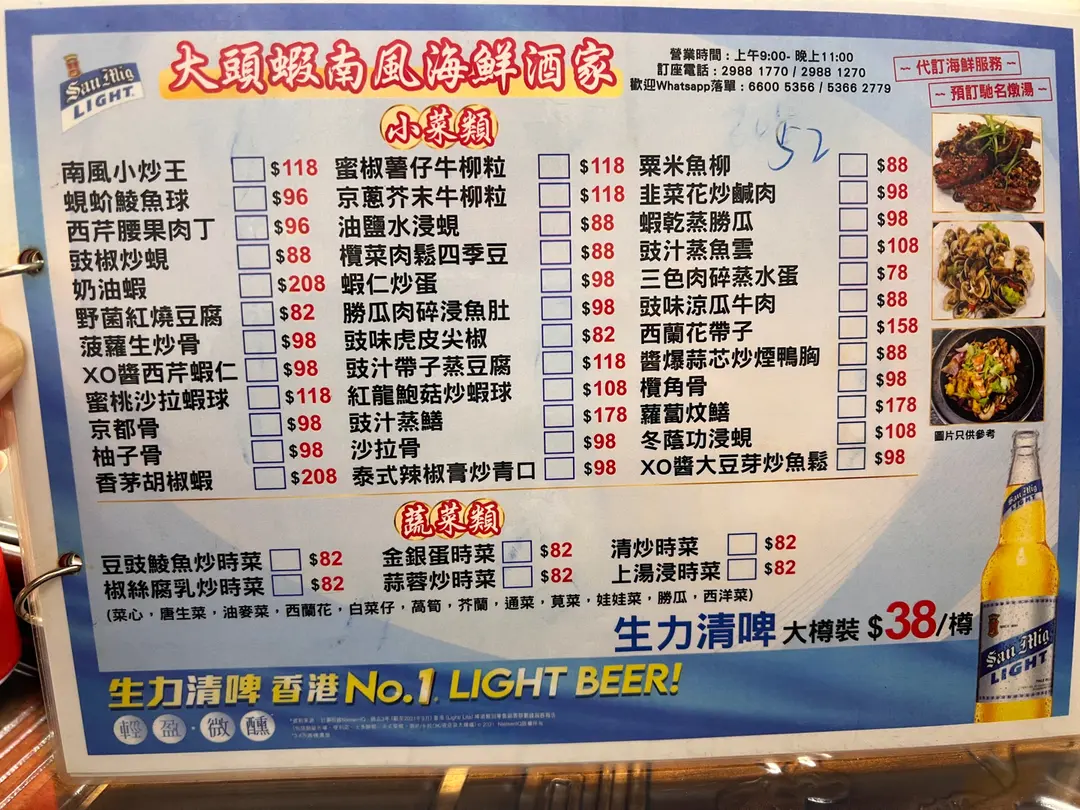 San Mig
LIGHT
大頭蝦南風海鮮酒家
營業時間：上午9:00- 晚上11:00
訂座電話：2988 1770 / 2988 1270
歡迎Whatsapp落單：6600 5356 / 5366 2779
～ 代訂海鮮服務 ～
～ 預訂馳名燉湯 ～
52
小菜類
南風小炒王 $118
蜆蚧鯪魚球 $96
西芹腰果肉丁 $96
豉椒炒蜆 $88
奶油蝦 $208
野菌紅燒豆腐 $82
菠蘿生炒骨 $98
XO醬西芹蝦仁 $98
蜜桃沙拉蝦球 $118
京都骨 $98
柚子骨 $98
香茅胡椒蝦 $208
蜜椒薯仔牛柳粒 $118
京蔥芥末牛柳粒 $118
油鹽水浸蜆 $88
欖菜肉鬆四季豆 $88
蝦仁炒蛋 $98
勝瓜肉碎浸魚肚 $98
豉味虎皮尖椒 $82
豉汁帶子蒸豆腐 $118
紅龍鮑菇炒蝦球 $108
豉汁蒸鱔 $178
沙拉骨 $98
泰式辣椒膏炒青口 $98
粟米魚柳 $88
韭菜花炒鹹肉 $98
蝦乾蒸勝瓜 $98
豉汁蒸魚雲 $108
三色肉碎蒸水蛋 $78
豉味涼瓜牛肉 $88
西蘭花帶子 $158
醬爆蒜芯炒煙鴨胸 $88
欖角骨 $98
蘿蔔炆鱔 $178
冬蔭功浸蜆 $108
XO醬大豆芽炒魚鬆 $98
圖片只供參考
蔬菜類
豆豉鯪魚炒時菜 $82
椒絲腐乳炒時菜 $82
金銀蛋時菜 $82
蒜蓉炒時菜 $82
清炒時菜 $82
上湯浸時菜 $82
(菜心，唐生菜，油麥菜，西蘭花，白菜仔，萵筍，芥蘭，通菜，莧菜，娃娃菜，勝瓜，西洋菜)
生力清啤 大樽裝 $38/樽
生力清啤 香港 No.1 LIGHT BEER!
輕盈·微醺
San Mig
LIGHT